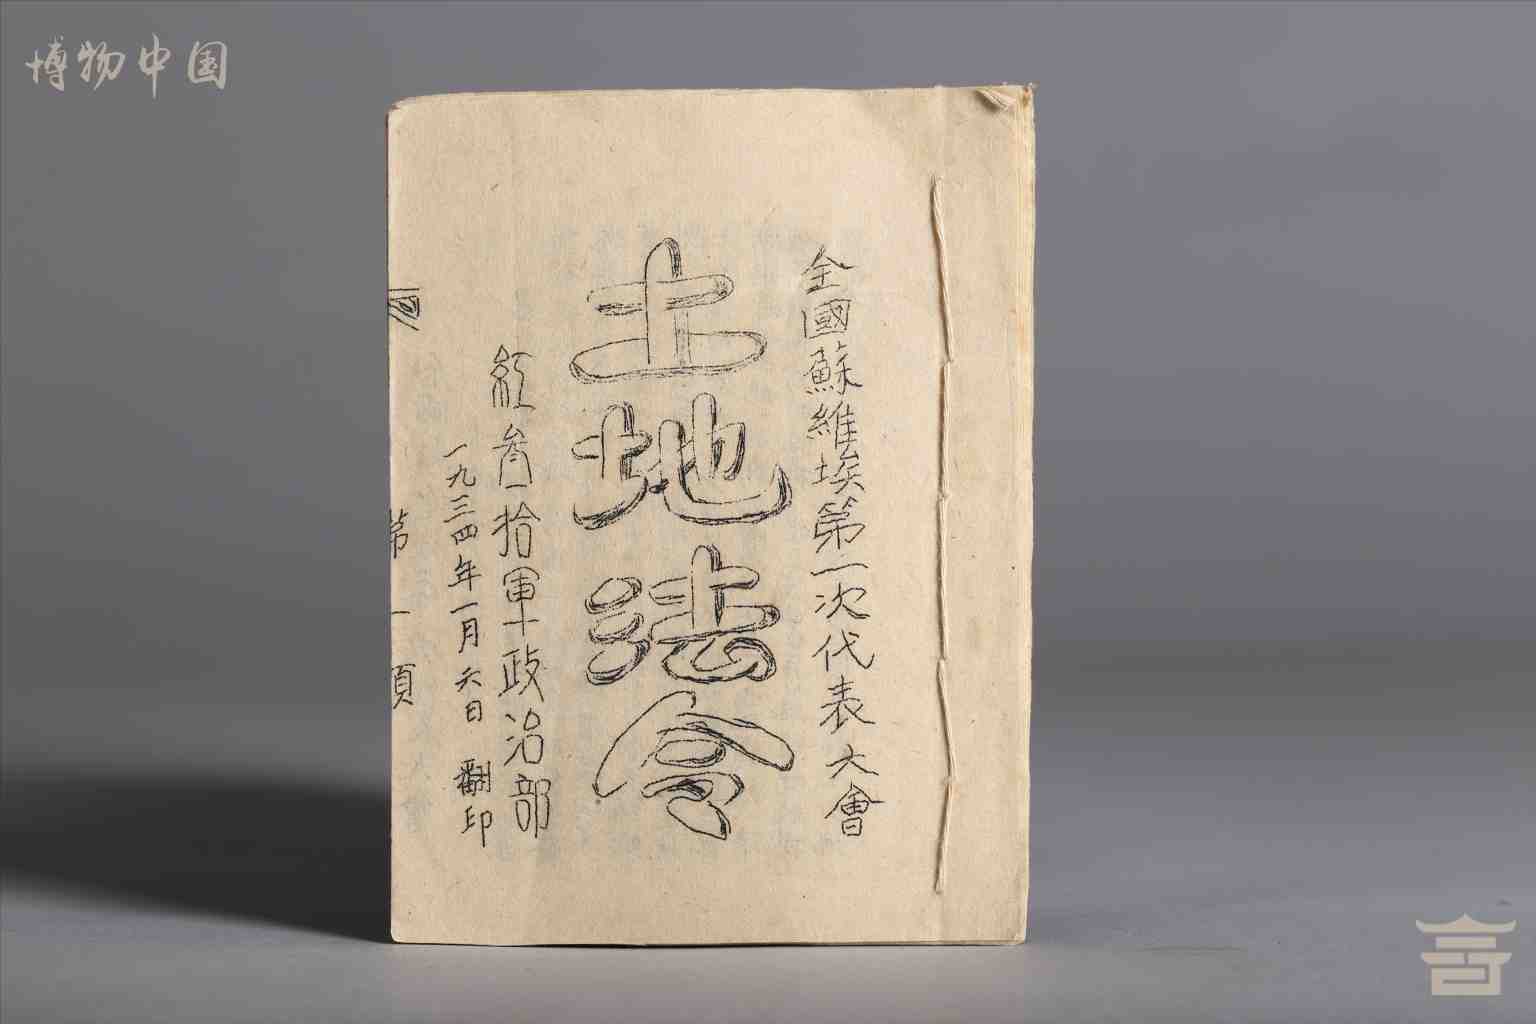 博物中国
全國蘇維埃第一次代表大會
土地法令
紅叁拾軍政治部
一九三四年一月六日 翻印
第一頁